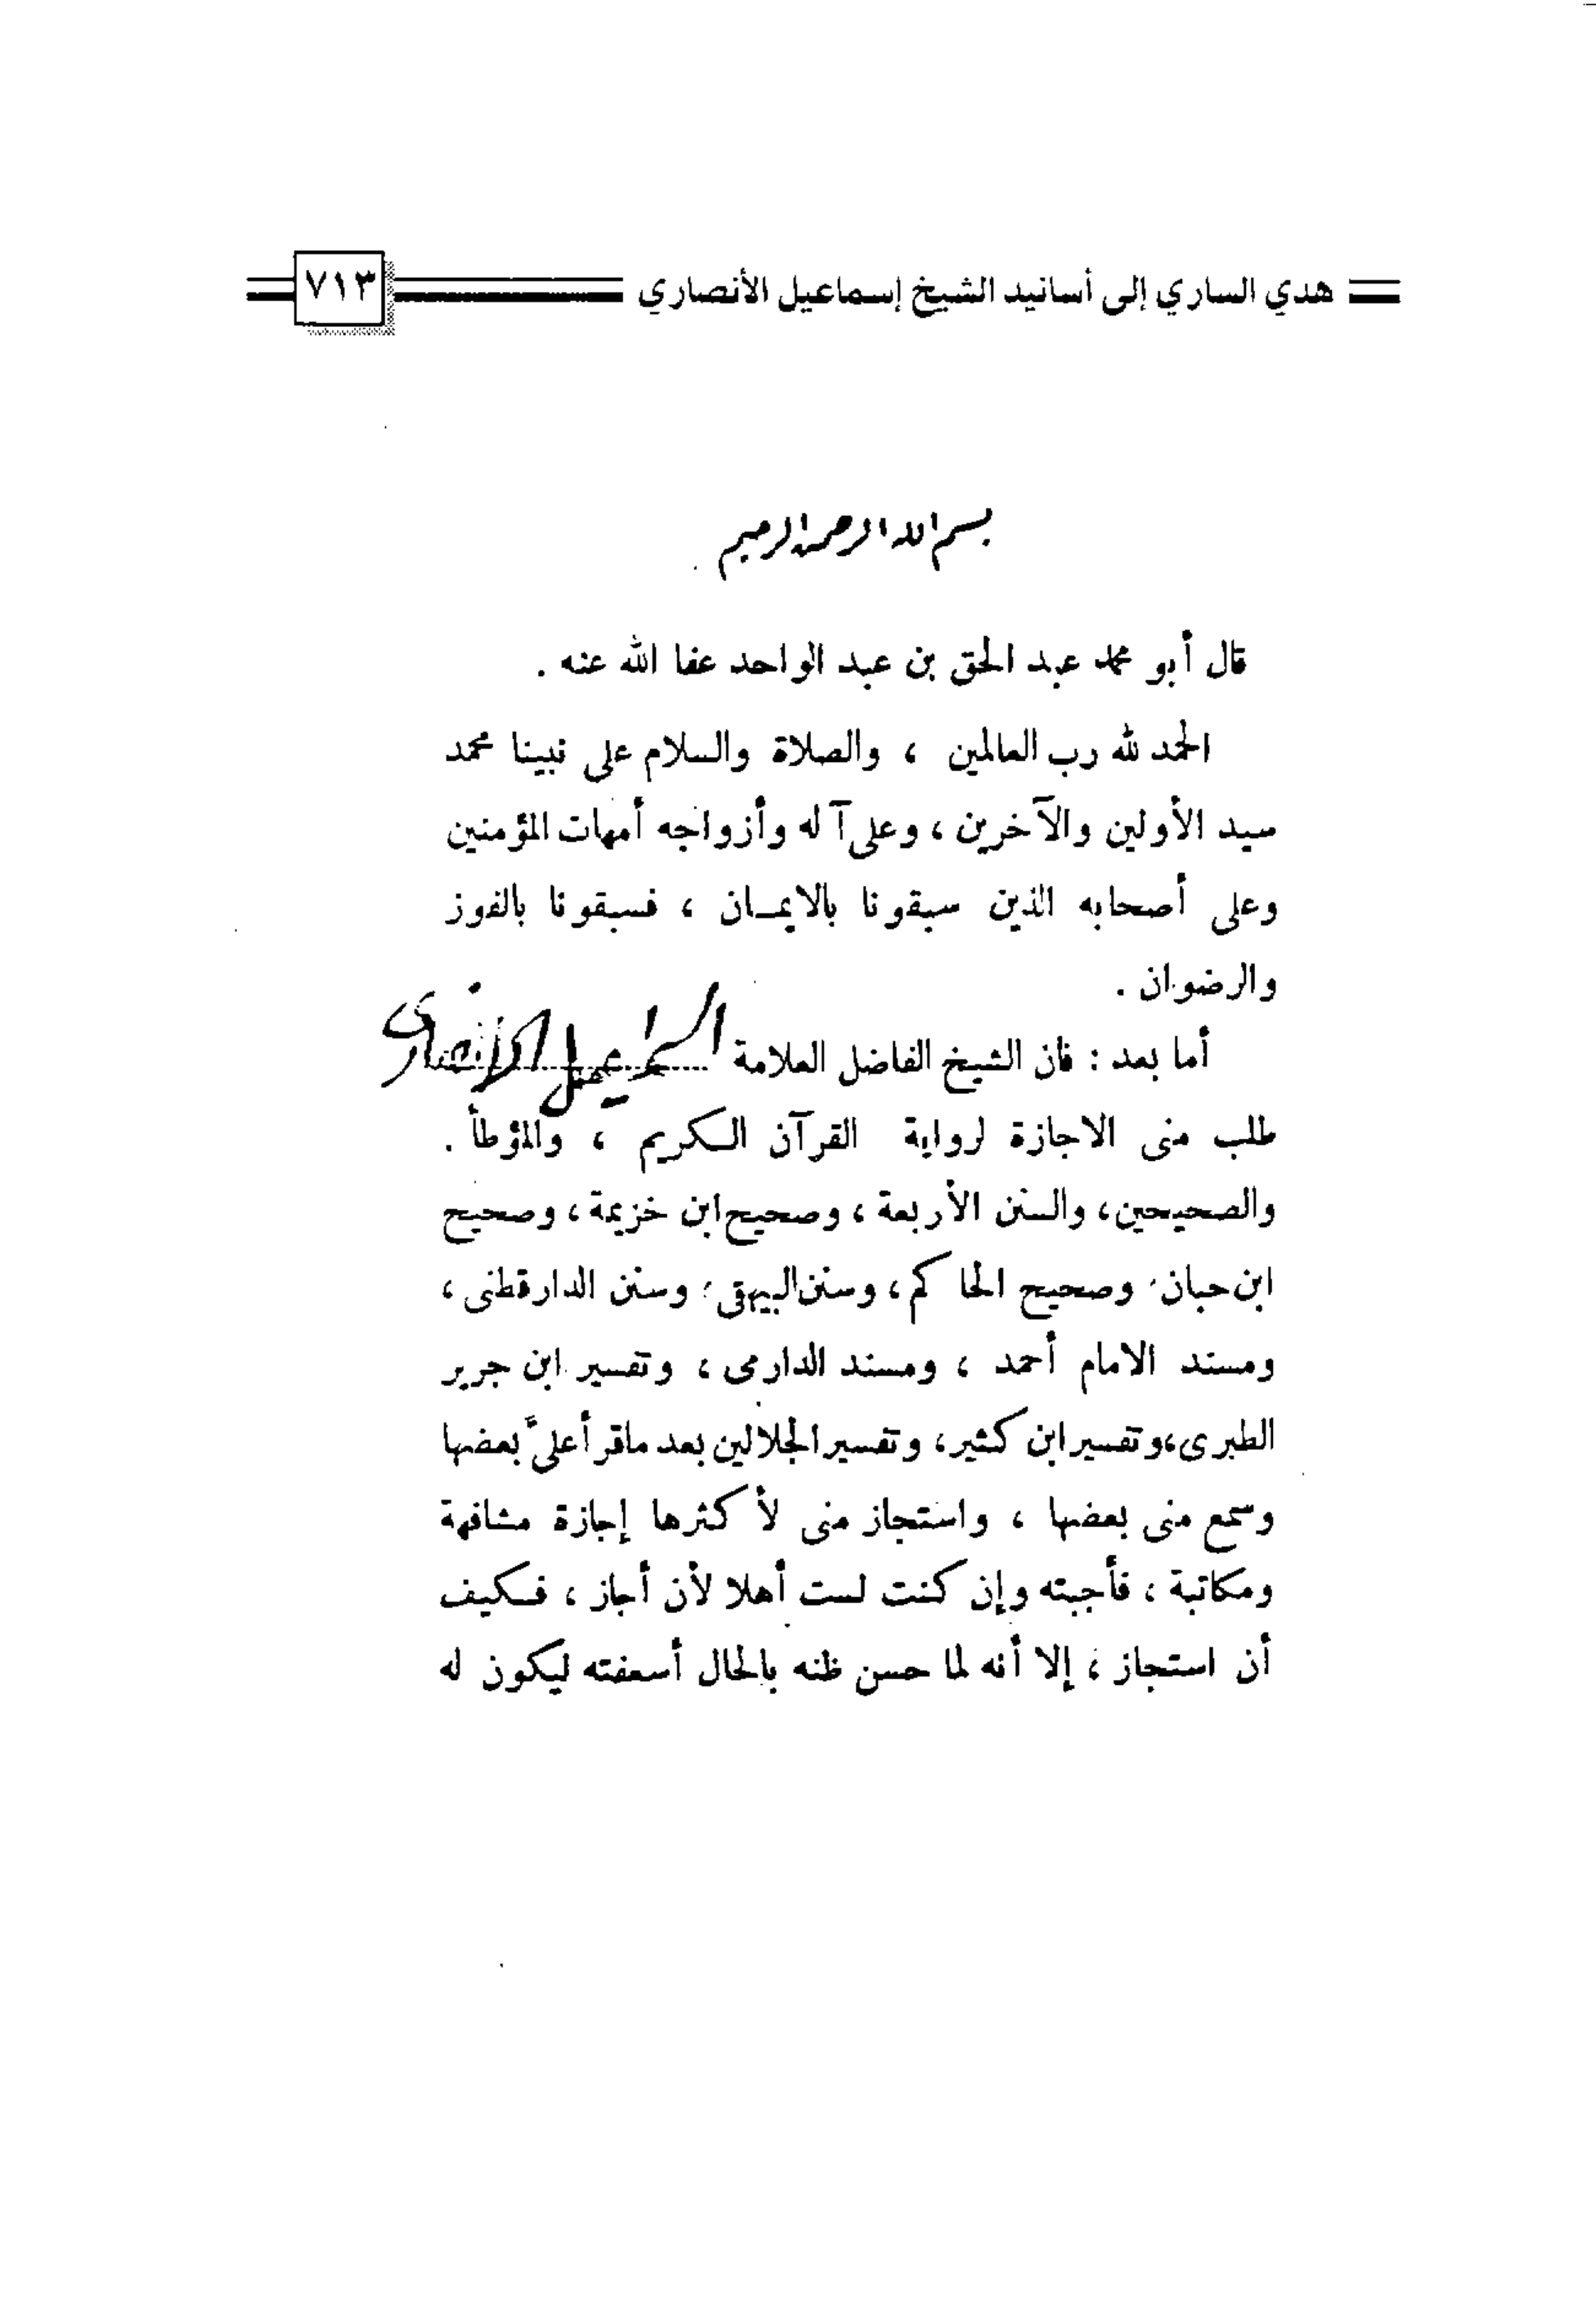 هدي الساري إلى أسانيد الشيخ إسماعيل الأنصاري ٧١٣
بسم الله الرحمن الرحيم
قال أبو محمد عبد الحق بن عبد الواحد عفا الله عنه .
الحمد لله رب العالمين ، والصلاة والسلام على نبينا محمد
سيد الأولين والآخرين ، وعلى آله وأزواجه أمهات المؤمنين
وعلى أصحابه الذين سبقونا بالايمـان ، فسبقونا بالفوز
والرضوان .
أما بعد : فان الشيخ الفاضل العلامة اسماعيل الانصاري
طلب منى الاجازة لرواية القرآن الـكريم ، والمؤطأ .
والصحيحين، والسنن الأربعة ، وصحيح ابن خزيمة ، وصحيح
ابن حبان، وصحيح الحاكم ، وسنن البيهقى، وسنن الدارقطنى ،
ومسند الامام أحمد ، ومسند الدارمى ، وتفسير ابن جرير
الطبرى، وتفسير ابن كثير، وتفسير الجلالين بعد ماقرأ علىَّ بعضها
وسمع منى بعضها ، واستجاز منى لأكثرها إجازة مشافهة
ومكاتبة ، فأجبته وإن كنت لست أهلا لأن أجاز ، فـكيف
أن استجاز ، إلا أنه لما حسن ظنه بالحال أسعفته ليكون له